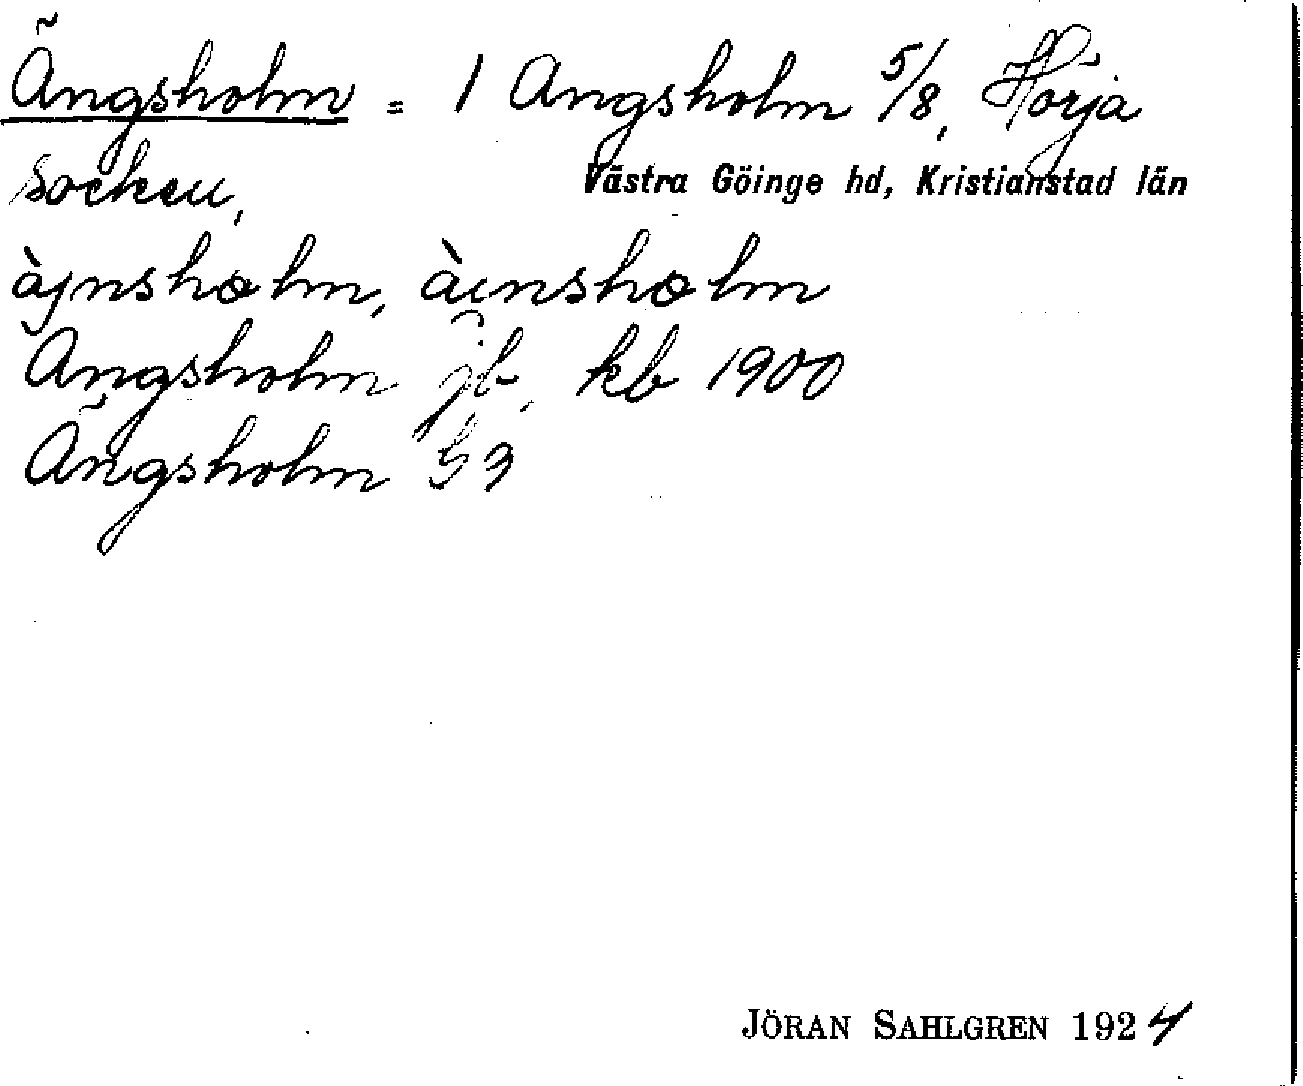 Ängsholm = 1 Ängsholm 5/8, Hörja
socken, Västra Göinge hd, Kristianstad län
àjnshalm, àinshalm
Ängsholm jb, kb 1900
Ängsholm G3
JÖRAN SAHLGREN 1924